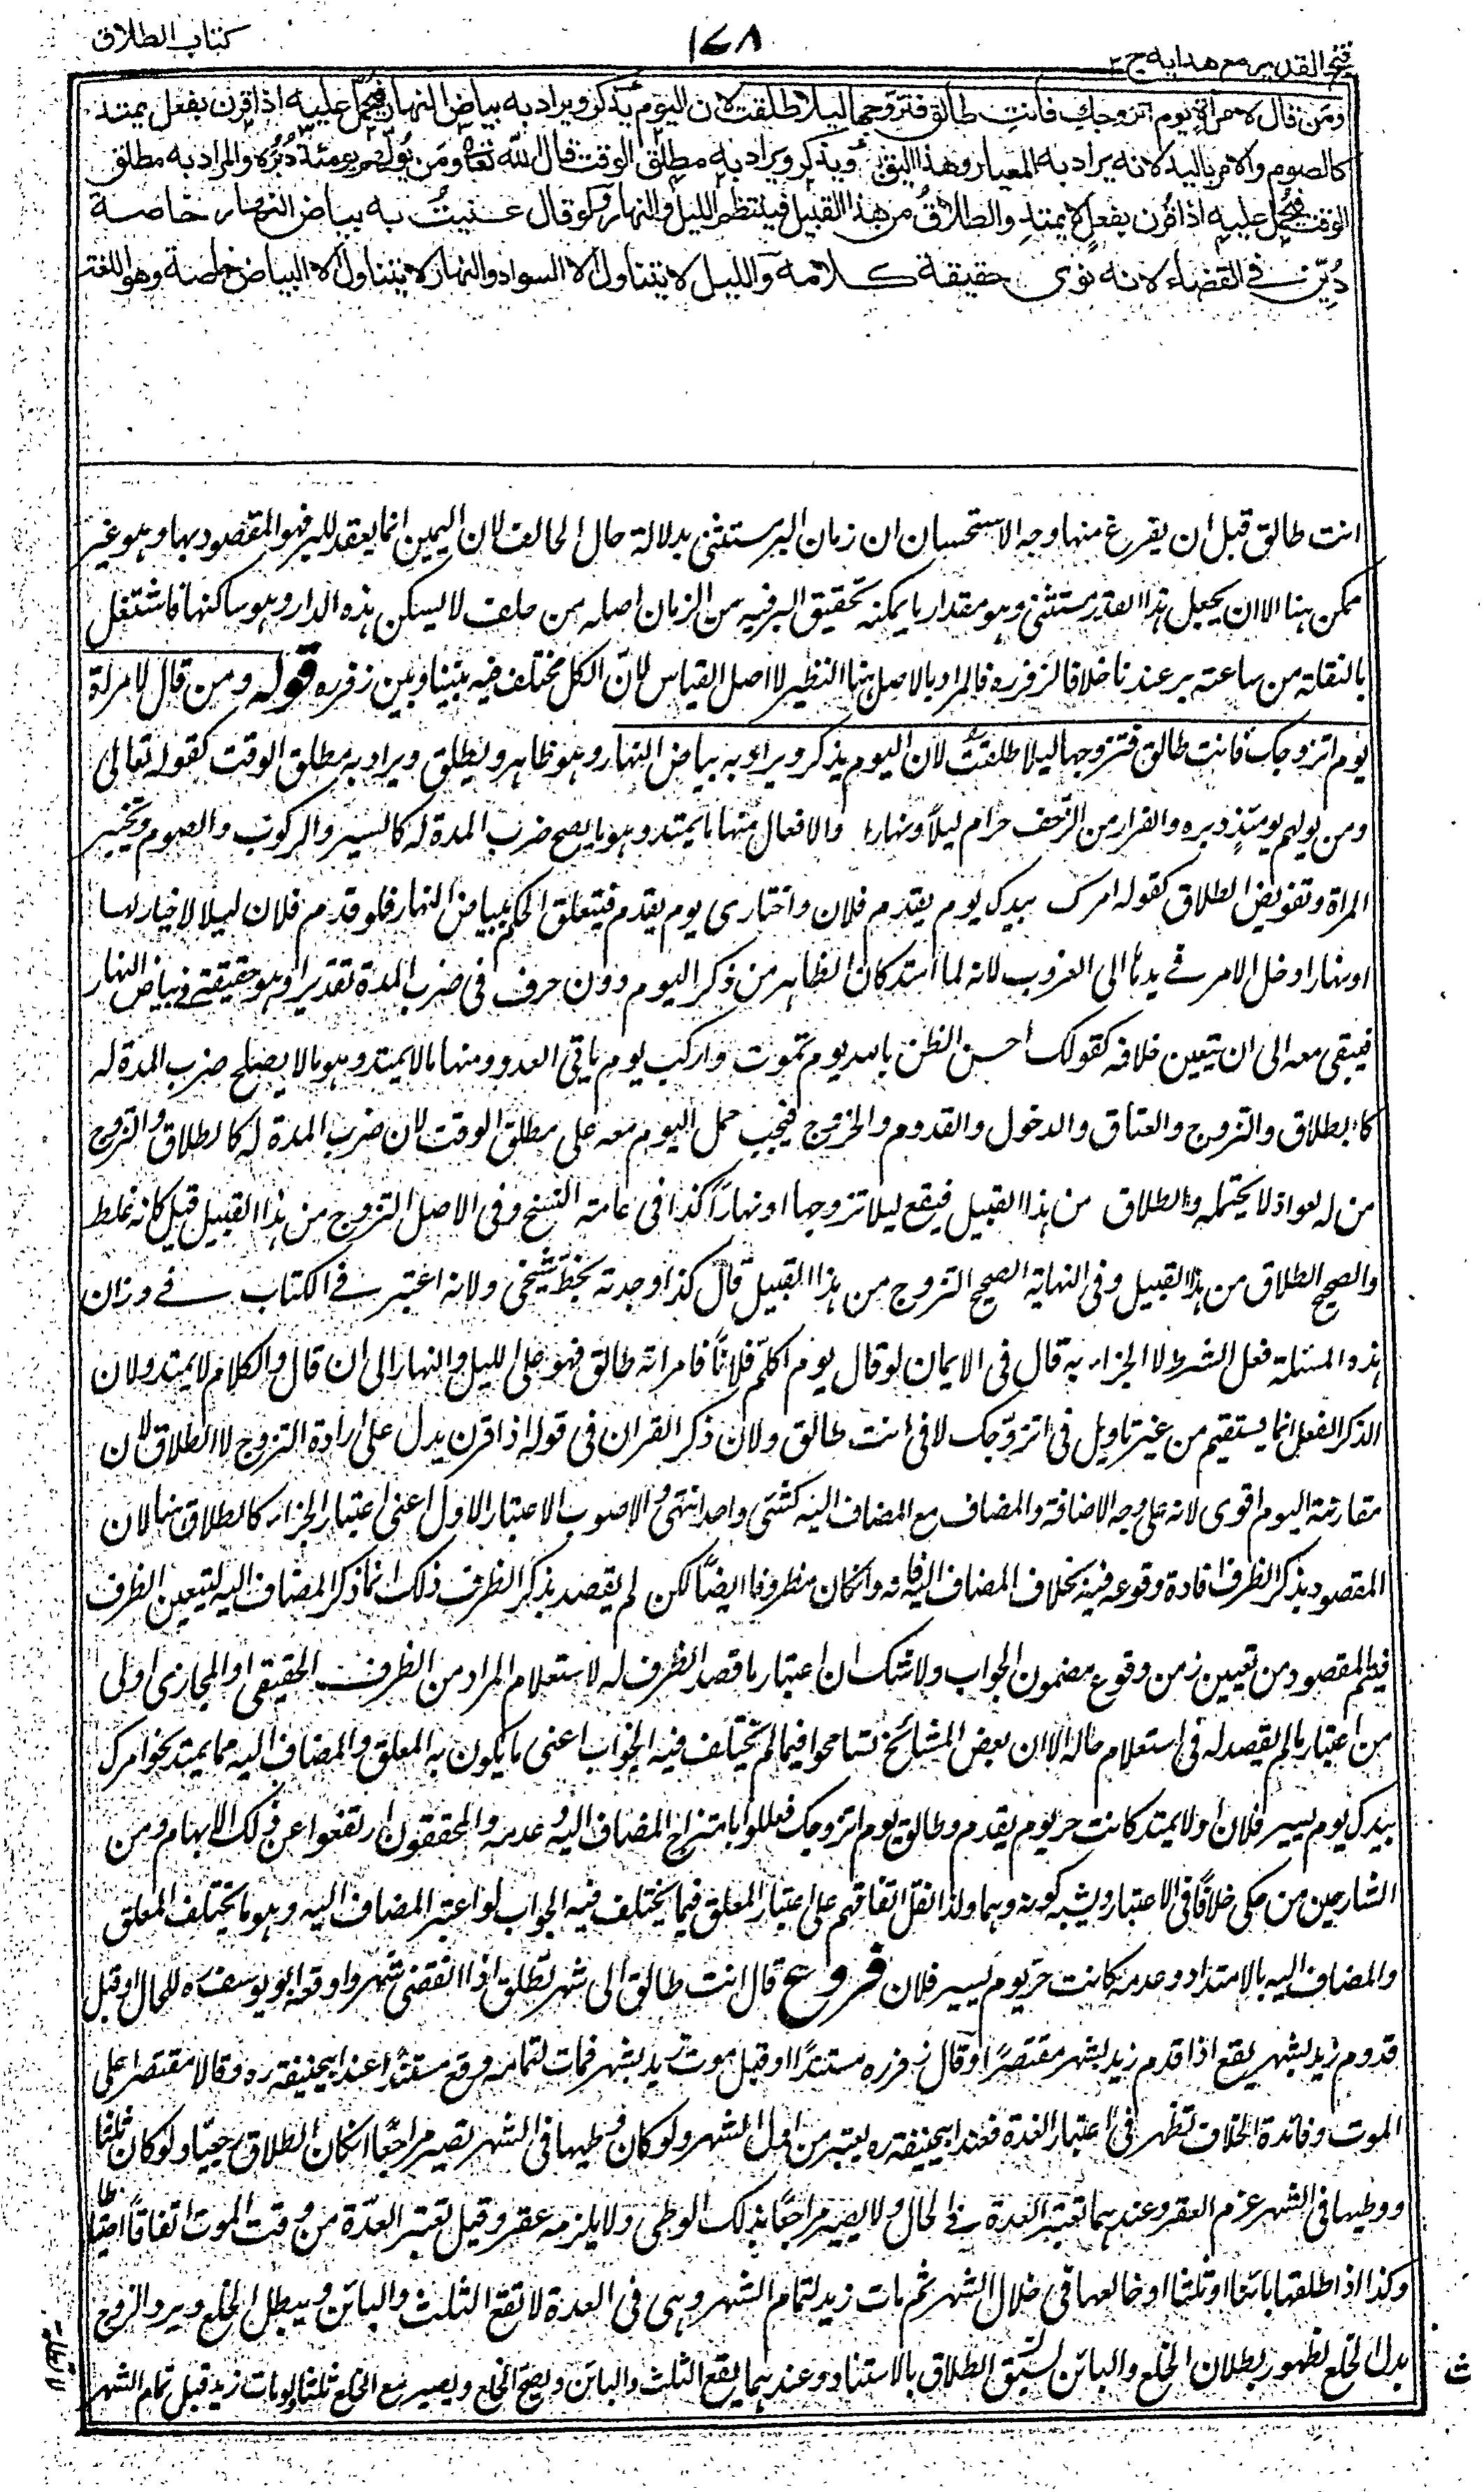 فتح القدير مع هدايه ج ٢
١٤٨
كتاب الطلاق
ومن قال لامرأة يوم اتزوجك فأنت طالق فتزوجها ليلا طلقت لان اليوم يذكر ويراد به بياض النهار فيحمل عليه اذا قرن بفعل يمتد
كالصوم والامر باليد لانه يراد به المعيار وهذا اليق ويذكر ويراد به مطلق الوقت قال الله تعالى ومن يولهم يومئذ دبره والمراد به مطلق
الوقت فيحمل عليه اذا قرن بفعل لا يمتد والطلاق من هذا القبيل فينتظم الليل والنهار ولو قال عنيت به بياض النهار خاصة
دين في القضاء لانه نوى حقيقة كلامه والليل لا يتناول الا السواد والنهار لا يتناول الا البياض خاصة وهو اللغة
انت طالق قبل ان يفرغ منها وجه الاستحسان ان زمان البر مستثنى بدلالة حال الحالف لان اليمين انما يعقد للبر فهو المقصود بها وهو غير
ممكن هنا الا ان يجعل هذا القدر مستثنى وهو مقدار ما يمكنه تحقيق البر فيه من الزمان اصله من حلف لا يسكن هذه الدار وهو ساكنها فاشتغل
بالنقلة من ساعته بر عندنا خلافا لزفر ره فالمراد بالاصل هنا النظير لا اصل القياس لان الكل مختلف فيه بيننا وبين زفر ره قوله ومن قال لامراة
يوم اتزوجك فانت طالق فتزوجها ليلا طلقت لان اليوم يذكر ويراد به بياض النهار وهو ظاهر ويطلق ويراد به مطلق الوقت كقوله تعالى
ومن يولهم يومئذ دبره والفرار من الزحف حرام ليلاً ونهارا والافعال منها ما يمتد وهو ما يصح ضرب المدة له كالسير والركوب والصوم وتخيير
المراة وتفويض الطلاق كقوله امرك بيدك يوم يقدم فلان واختاري يوم يقدم فيتعلق الحكم ببياض النهار فلو قدم فلان ليلا لا خيار لها
او نهارا دخل الامر في يدها الى الغروب لانه لما امتد كان الظاهر من ذكر اليوم دون حرف في ضرب المدة تقديرا وهو حقيقة في بياض النهار
فيبقى معه الى ان يتعين خلافه كقولك احسن الظن بالله يوم تموت واركب يوم ياتي العدو ومنها ما لا يمتد وهو ما لا يصلح ضرب المدة له
كالطلاق والتزوج والعتاق والدخول والقدوم والخروج فيجب حمل اليوم معه على مطلق الوقت لان ضرب المدة له كالطلاق والتزوج
من له لغو اذ لا يحتمله والطلاق من هذا القبيل فيقع ليلا تزوجها او نهاراً كذا في عامة النسخ وفي الاصل التزوج من هذا القبيل قيل كانه غلط
والصحيح الطلاق من هذا القبيل وفي النهاية الصحيح التزوج من هذا القبيل قال كذا وجدته بخط شيخي ولانه اعتبر في الكتاب في وزان
هذه المسئلة فعل الشرط لا الجزاء به قال في الايمان لو قال يوم اكلم فلاناً فامراته طالق فهو على الليل والنهار الى ان قال والكلام لا يمتد ولان
الذكر الفعل انما يستقيم من غير تاويل في اتزوجك لا في انت طالق ولان ذكر القران في قوله اذا قرن يدل على ارادة التزوج لا الطلاق لان
مقارنة اليوم اقوى لانه على وجه الاضافة والمضاف مع المضاف اليه كشئ واحد انتهى والاصوب الاعتبار الاول اعني اعتبار الجزاء كالطلاق هنا لان
المقصود بذكر الظرف افادة وقوعه فيه بخلاف المضاف اليه فانه وان كان مظروفا ايضاً لكن لم يقصد بذكر الظرف ذلك انما ذكر المضاف اليه ليتعين الظرف
فيتم المقصود من تعيين زمن وقوع مضمون الجواب ولا شك ان اعتبار ما قصد الظرف له لاستعلام المراد من الظرف الحقيقي او المجازي اولى
من اعتبار ما لم يقصد له في استعلام حاله الا ان بعض المشائخ تسامحوا فيما لم يختلف فيه الجواب اعني ما يكون به المعلق والمضاف اليه مما يمتد نحو امرك
بيدك يوم يسير فلان او لا يمتد كانت حر يوم يقدم وطالق يوم اتزوجك فعللوا بامتزاج المضاف اليه وعدمه والمحققون ارتفعوا عن ذلك الابهام ومن
الشارحين من حكى خلافاً في الاعتبار ويشبه كونه وهما ولذا نقل اتفاقهم على اعتبار المعلق فيما يختلف فيه الجواب لو اعتبر المضاف اليه وهو ما يختلف المعلق
والمضاف اليه بالامتداد وعدمه كانت حر يوم يسير فلان فروع قال انت طالق الى شهر تطلق اذا انقضى شهر واوقعه ابو يوسف ره للحال او قبل
قدوم زيد بشهر يقع اذا قدم زيد بشهر مقتصراً وقال زفر ره مستنداً او قبل موت زيد بشهر فمات لتمامه وقع مستنداً عند ابيحنيفة ره وقالا مقتصرا على
الموت وفائدة الخلاف تظهر في اعتبار العدة فعند ابيحنيفة ره يعتبر من اول الشهر ولو كان وطيها في الشهر تصير مراجعاً لو كان الطلاق رجعيا ولو كان ثلثا
ووطيها في الشهر غرم العقر وعندهما تعتبر العدة في الحال ولا يصير مراجعاً بذلك الوطي ولا يلزمه عقر وقيل تعتبر العدة من وقت الموت اتفاقاً احتياطا
وكذا اذا طلقها بائنا او ثلثا او خالعها في خلال الشهر ثم مات زيد لتمام الشهر وهي في العدة لا تقع الثلث والبائن ويبطل الخلع ويرد الزوج
بدل الخلع لظهور بطلان الخلع والبائن لسبق الطلاق بالاستناد وعندهما يقع الثلث والبائن ويصح الخلع ويصير مع الخلع ثلثا ولو مات زيد قبل تمام الشهر